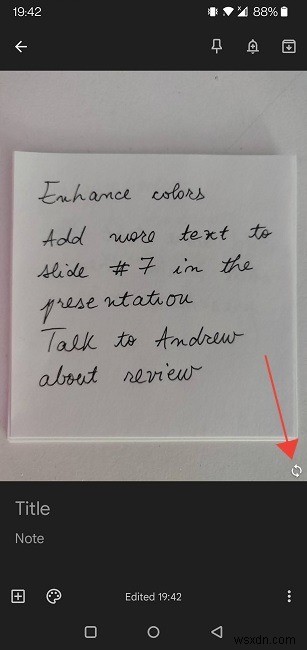 19:42
88%
Enhance colors
Add more text to
slide #7 in the
presentation
Talk to Andrew
about review
Title
Note
Edited 19:42
wsxdn.com